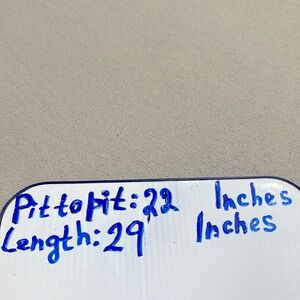 Pit to pit: 22 Inches
Length: 29 Inches